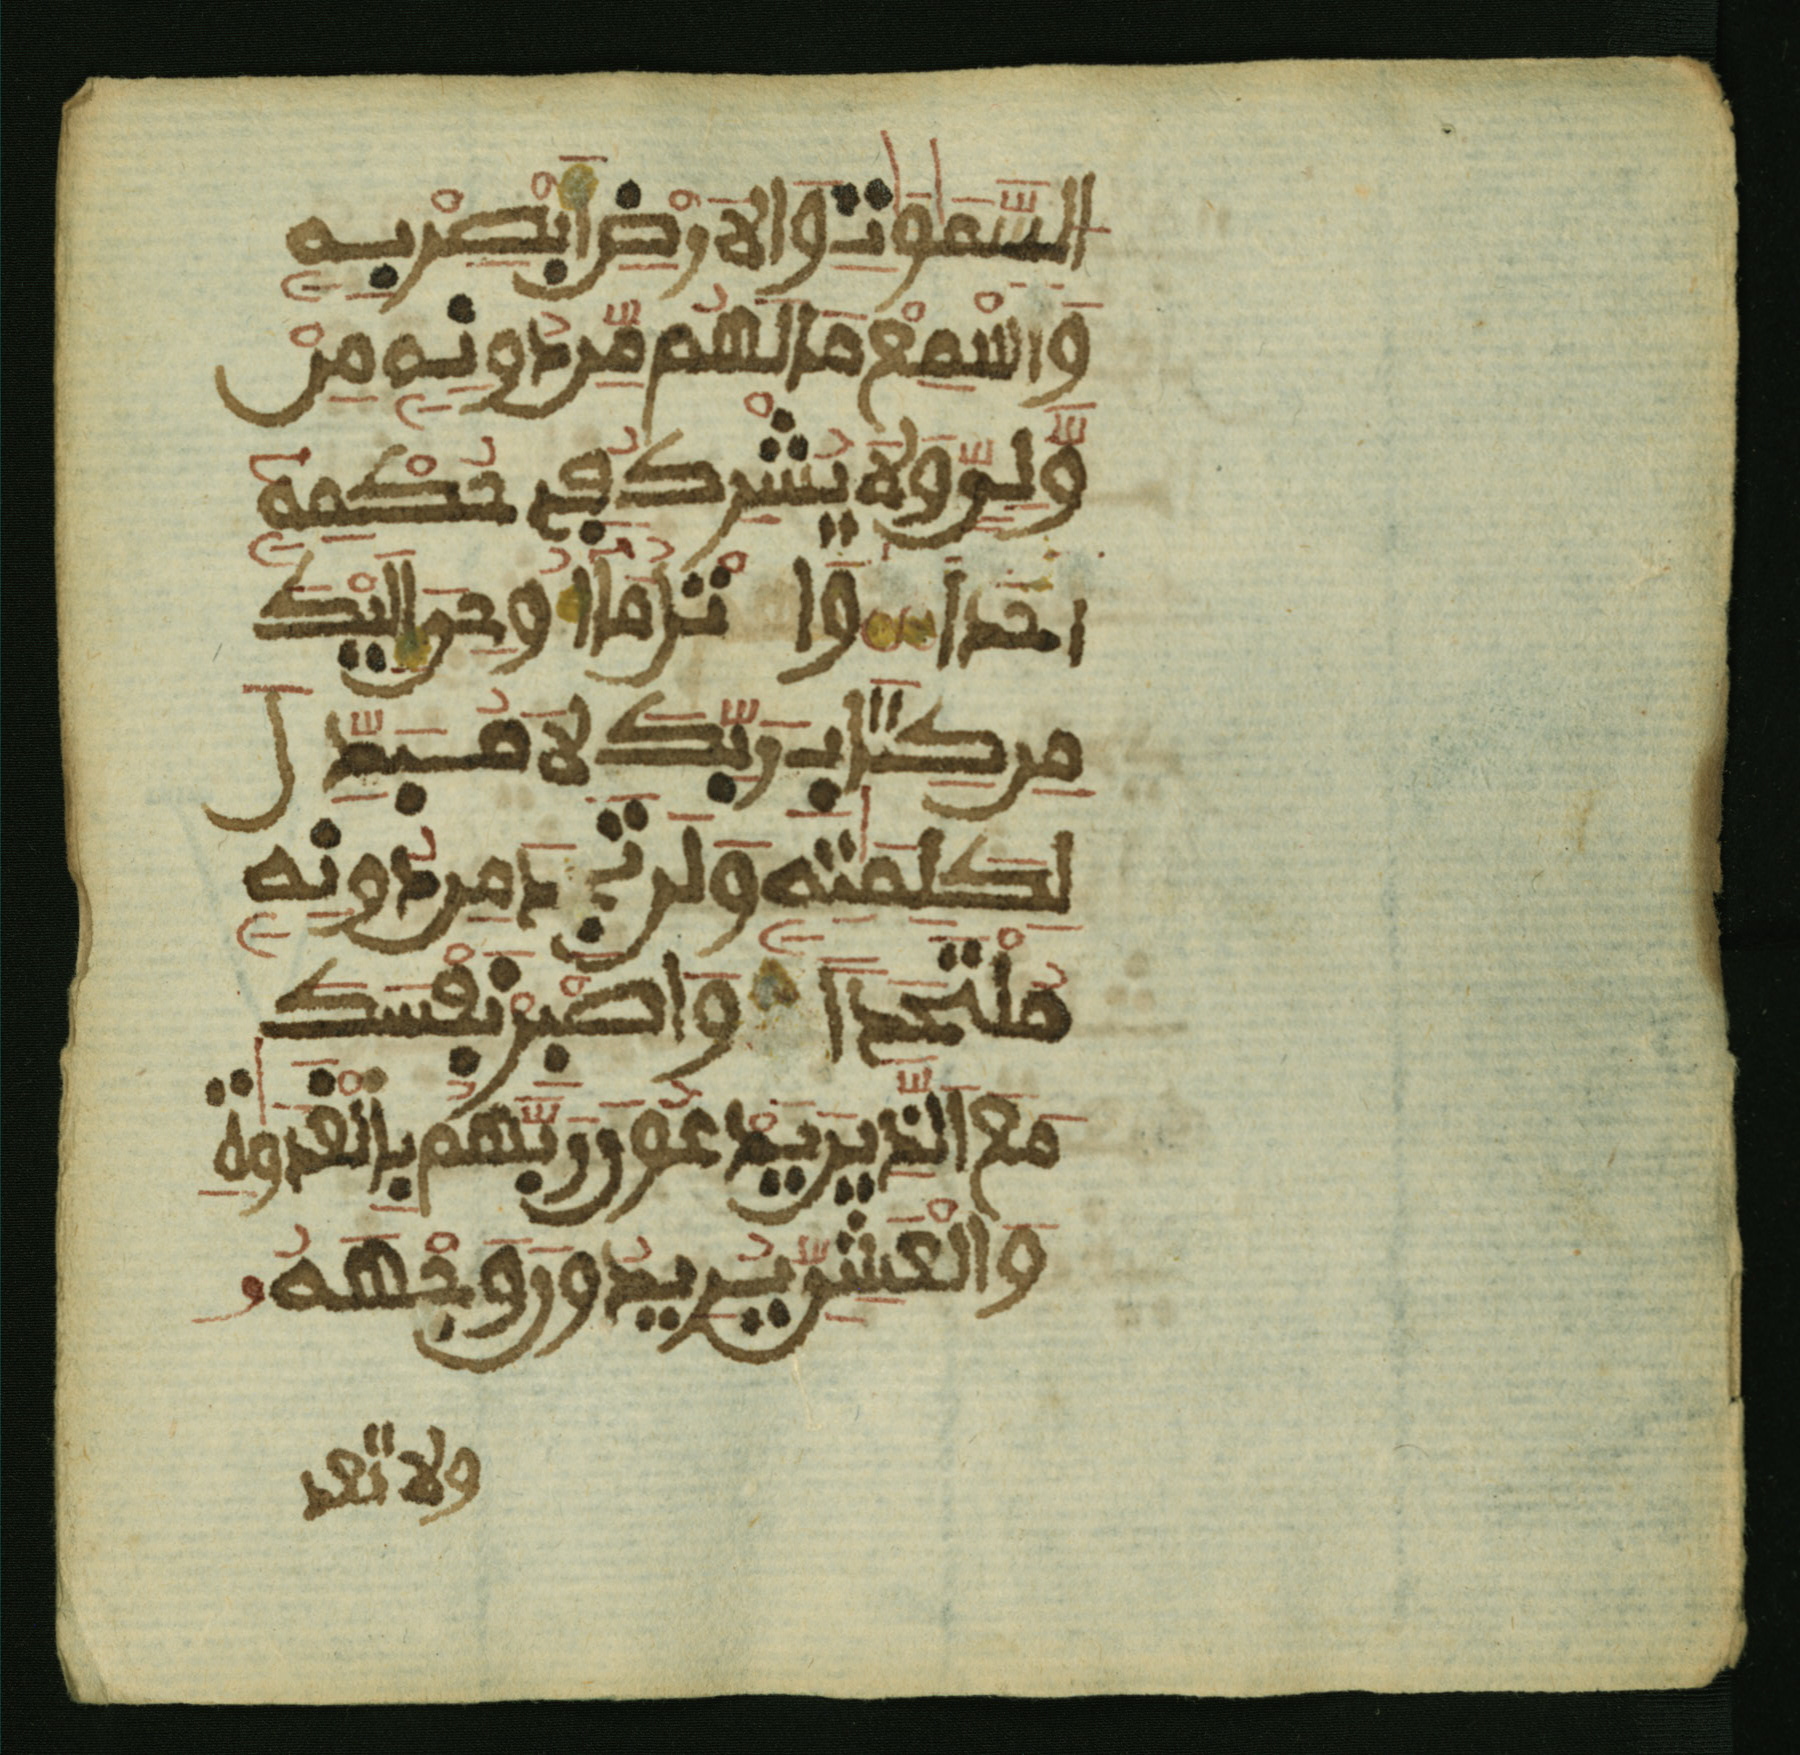 السَّمَٰوَٰتِ وَالَارْضِ أَبْصِرْ بِهِ
وَأَسْمِعْ مَا لَهُم مِّن دُونِهِ مِنْ
وَّلِيٍّ وَلَا يُشْرِكُ فِي حُكْمِهِ
أَحَدًا وَاتْلُ مَا أُوحِيَ إِلَيْكَ
مِن كِتَابِ رَبِّكَ لَا مُبَدِّلَ
لِكَلِمَٰتِهِ وَلَن تَجِدَ مِن دُونِهِ
مُلْتَحَدًا وَاصْبِرْ نَفْسَكَ
مَعَ الَّذِينَ يَدْعُونَ رَبَّهُم بِالْغَدَوٰةِ
وَالْعَشِيِّ يُرِيدُونَ وَجْهَهُ
ولا تعد